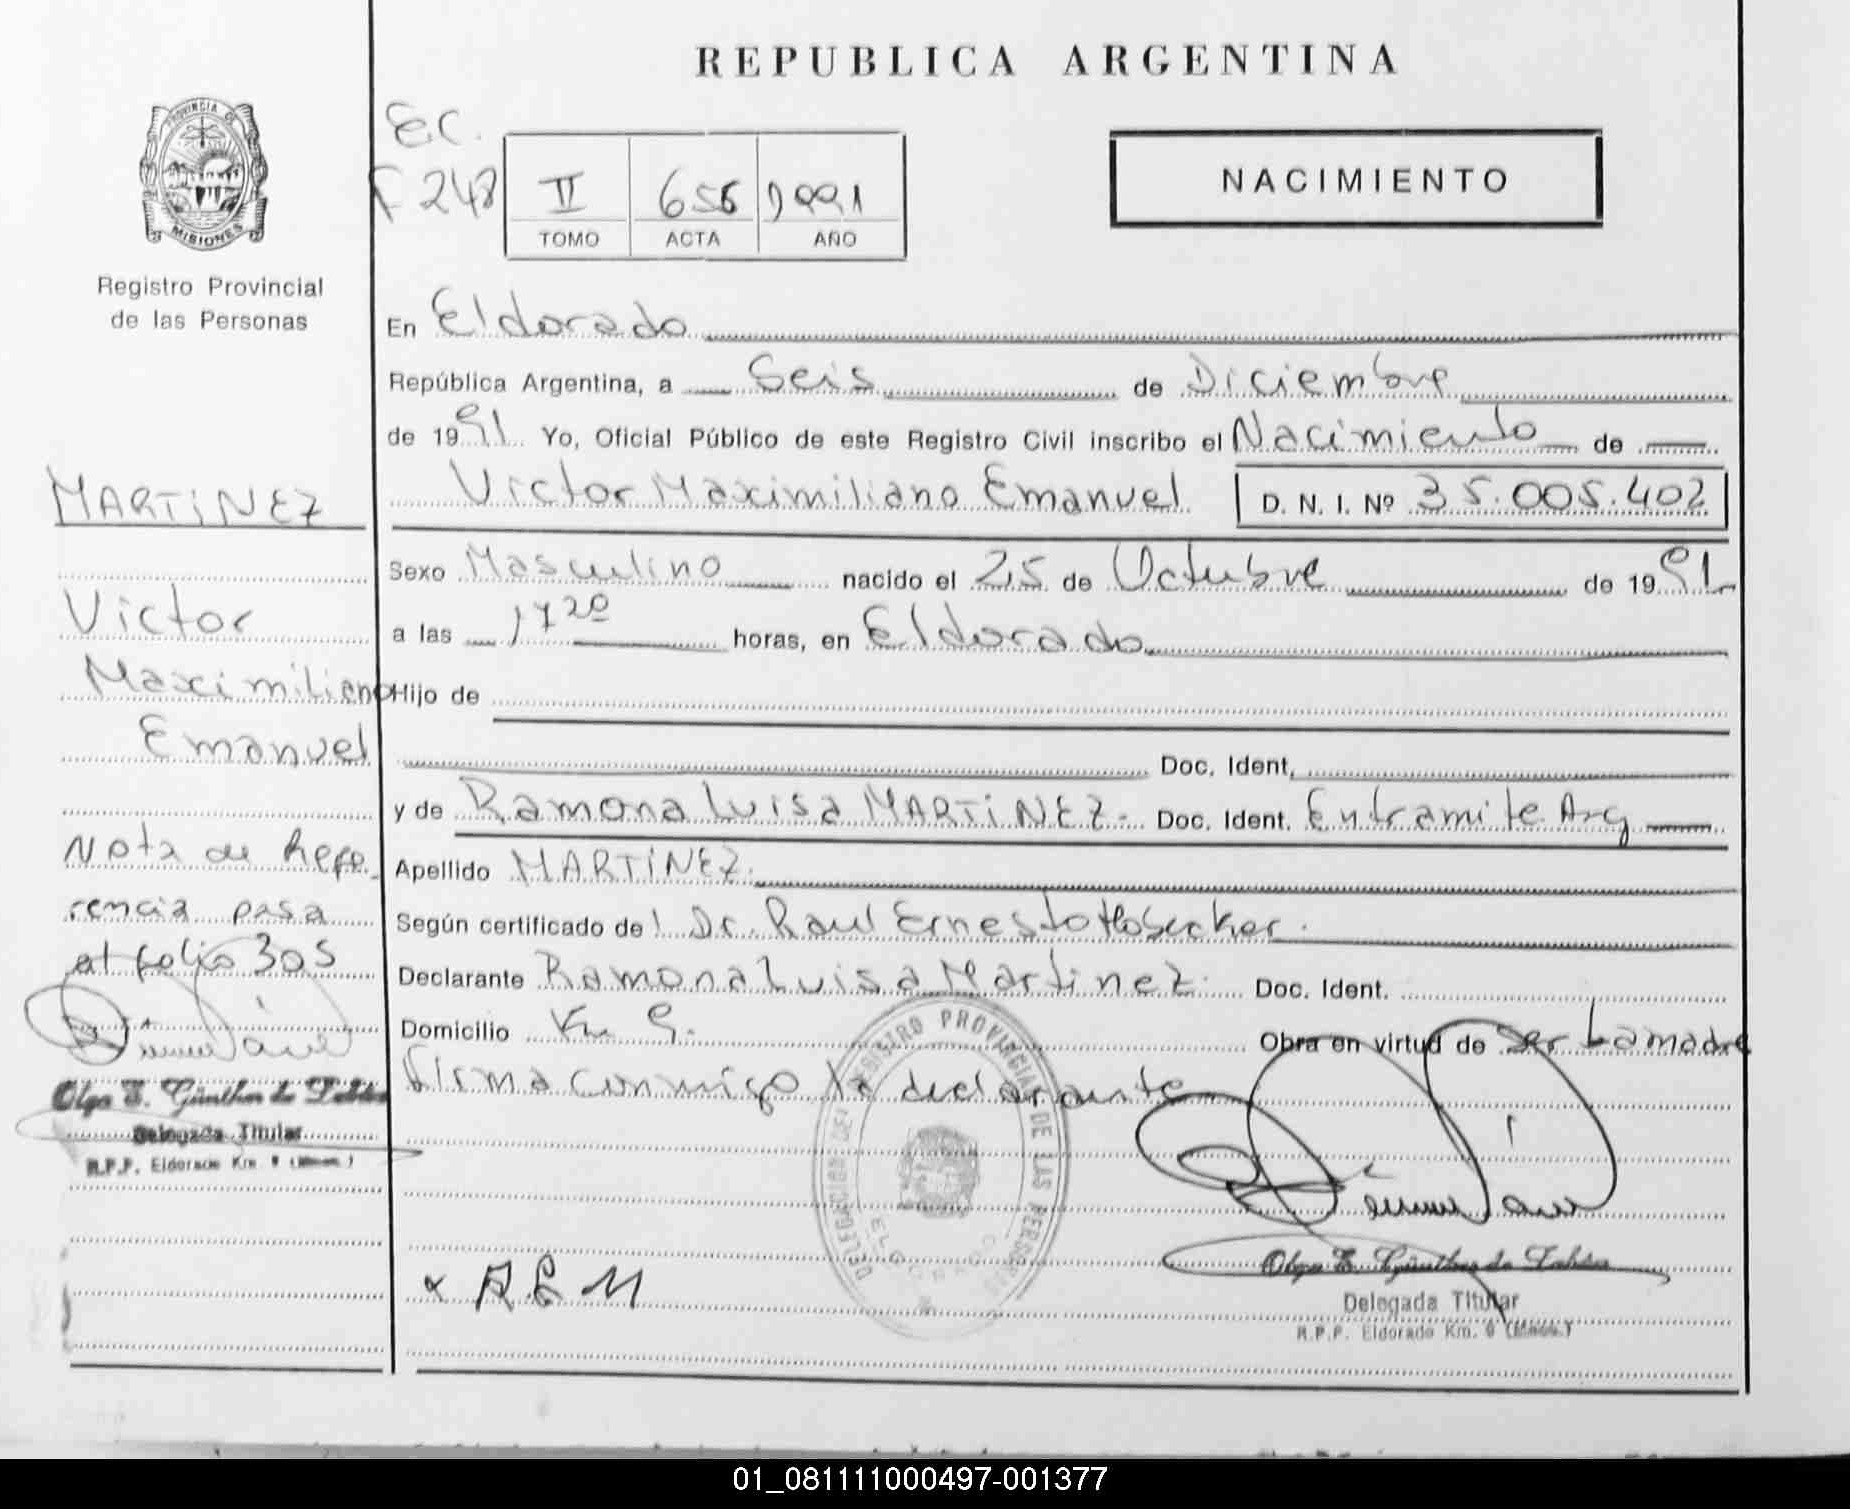 REPUBLICA ARGENTINA
PROVINCIA DE
MISIONES
Registro Provincial
de las Personas
E.C.
F 248
II 656 1991
TOMO ACTA AÑO
NACIMIENTO
En Eldorado
República Argentina, a Seis de Diciembre
de 1991 Yo, Oficial Público de este Registro Civil inscribo el Nacimiento de
Victor Maximiliano Emanuel D. N. I. Nº 35.005.402
Sexo Masculino nacido el 25 de Octubre de 1991
a las 17 20 horas, en Eldorado
Hijo de
Doc. Ident.
y de Ramona Luisa MARTiNEZ.- Doc. Ident. Entramite Arg
Apellido MARTiNEZ.
Según certificado de l Dr. Raul Ernesto
Declarante Ramona Luisa Martinez. Doc. Ident.
Domicilio Km 9. Obra en virtud de ser La madre
firma conmigo la declarante
MARTiNEZ
Victor
Maximiliano
Emanuel
Nota de Refe
rencia pasa
al folio 305
Olga E. Günther de
Delegada Titular
R.P.P. Eldorado Km. 9 (Mnes.)
DELEGACION DEL REGISTRO PROVINCIAL DE LAS PERSONAS
ELDORADO
x R.L M
Olga E. Günther de
Delegada Titular
R.P.P. Eldorado Km. 9 (Mnes.)
01_081111000497-001377